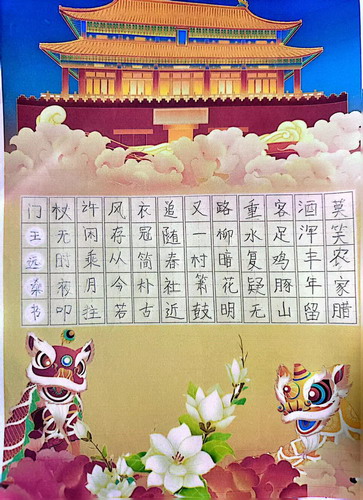 莫笑农家腊
酒浑丰年留
客足鸡豚山
重水复疑无
路柳暗花明
又一村箫鼓
追随春社近
衣冠简朴古
风存从今若
许闲乘月拄
杖无时夜叩
门王远桑书